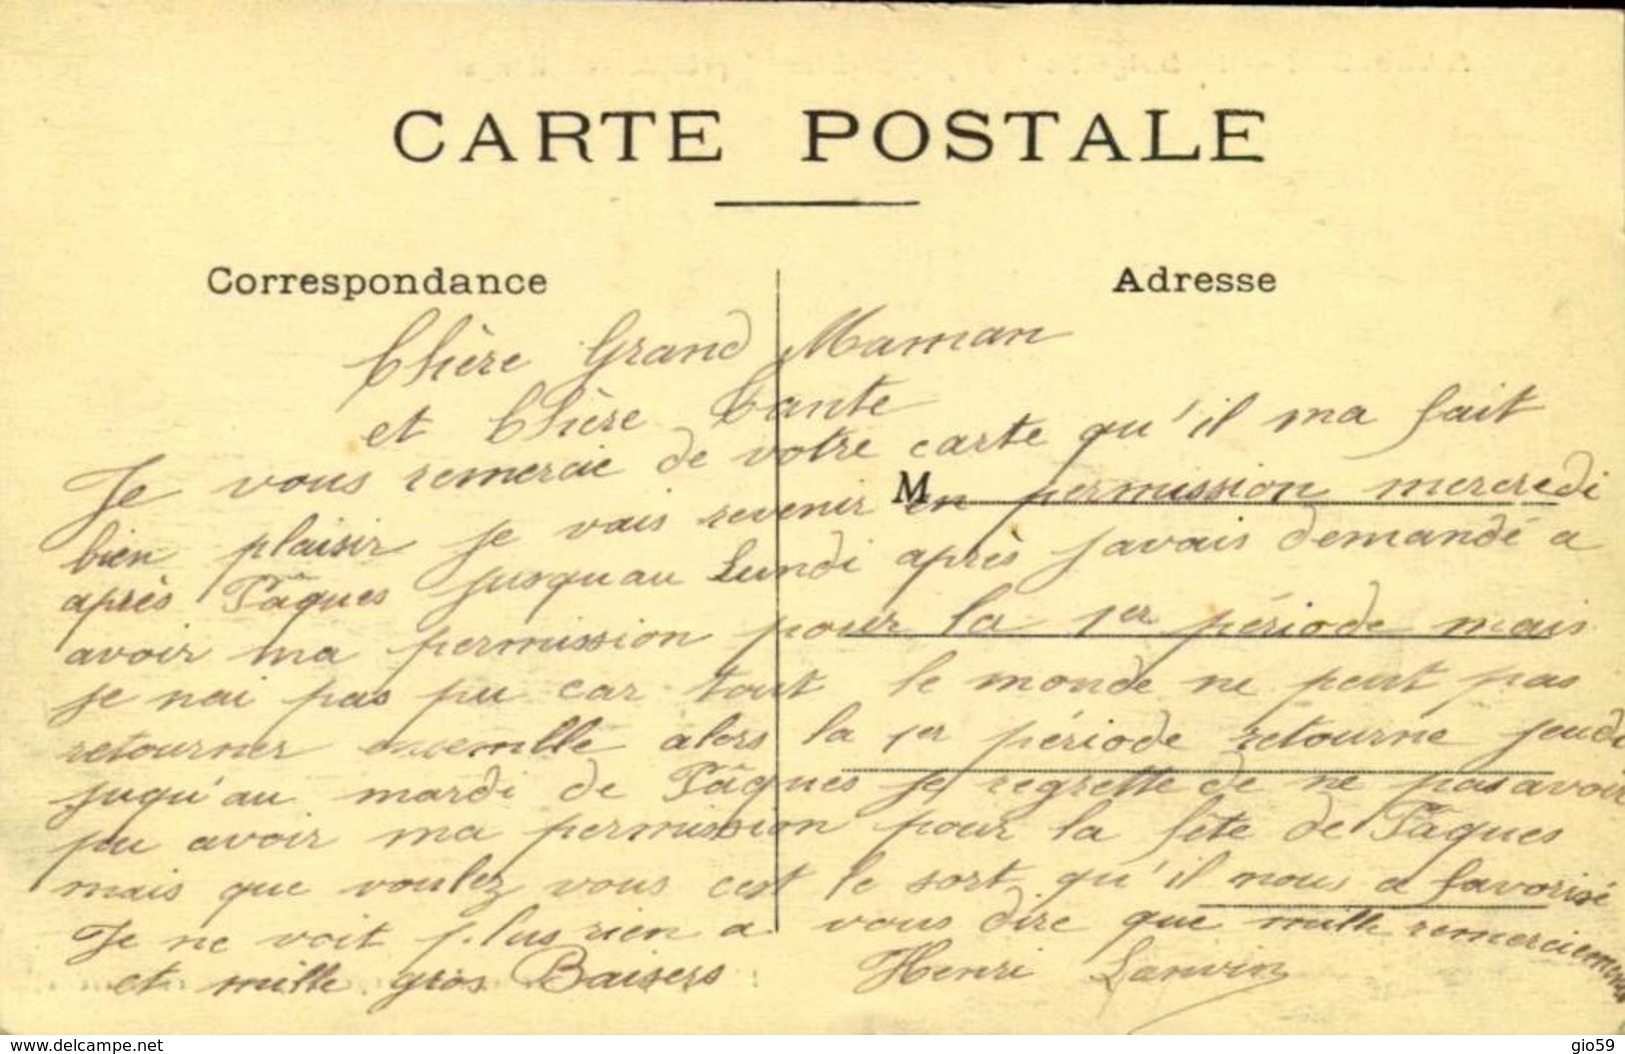 CARTE POSTALE
Correspondance
Adresse
Chère Grand Maman
et Chère Tante
Je vous remercie de votre carte qu'il ma fait
bien plaisir je vais revenir en permission mercredi
M
après Pâques jusquau Lundi après javais demandé a
avoir ma permission pour la 1er période mais
je nai pas pu car tout le monde ne peut pas
retourner ensemlle alors la 1er période retourne jeudi
juqu'au mardi de Pâques je regrette de ne pas avoir
pu avoir ma permission pour la fête de Pâques
mais que voulez vous cest le sort qu'il nous a favorisé
Je ne voit plus rien a vous dire que mille remerciements
et mille gros Baisers Henri Lanvin
delcampe.net
gio59